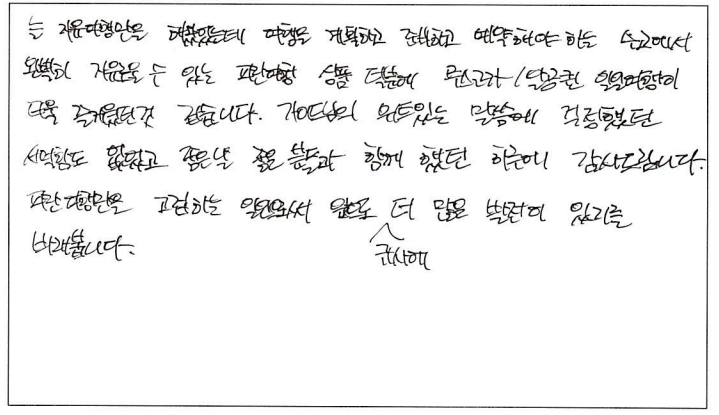 늘 자유여행만을 해왔었는데 여행을 계획하고 준비하고 예약해야 하는 수고에서
완벽히 자유로울 수 있는 파란여행 상품 덕분에 일일여행이
더욱 즐거웠던것 같습니다. 가이드님의 위트있는 말씀에 걱정했던
서먹함도 없었고 좋은날 좋은 분들과 함께 했던 하루에 감사드립니다.
파란여행만을 고집하는 일원으로서 앞으로 더 많은 발전이 있기를
바래봅니다. 귀사에